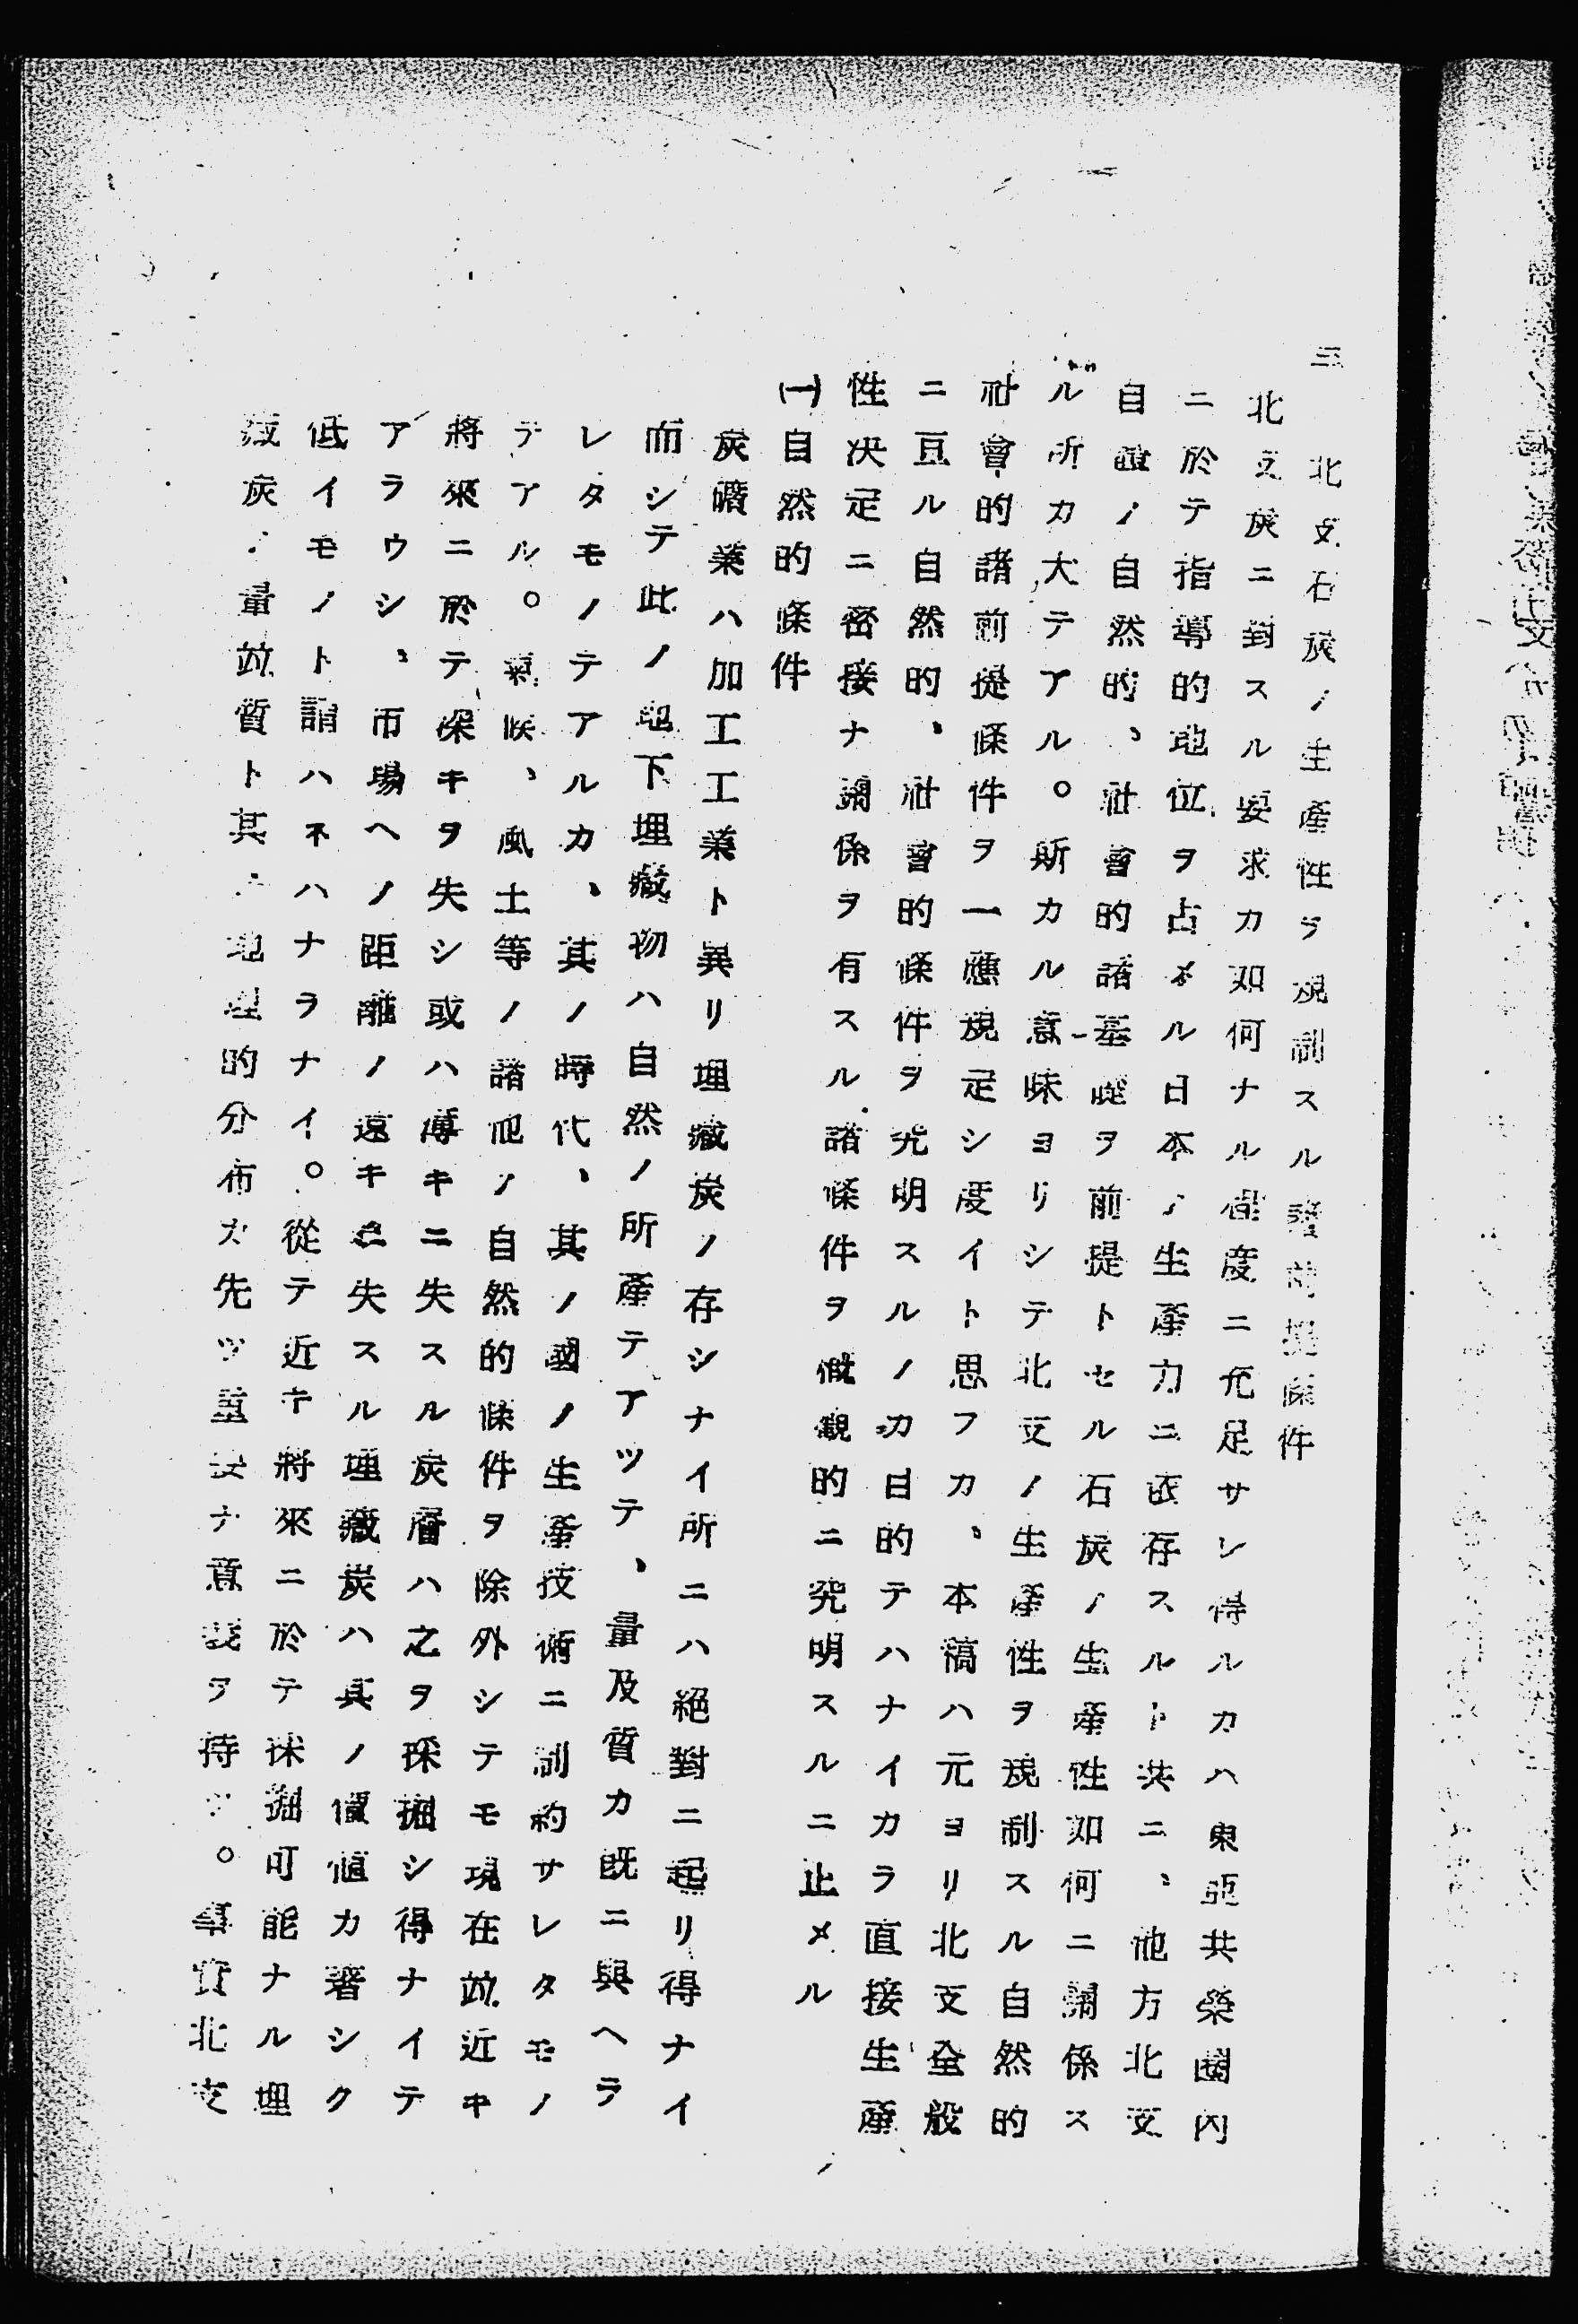 三　北支石炭ノ生產性ヲ規制スル諸前提條件
北支炭ニ對スル要求カ如何ナル程度ニ充足サレ得ルカハ東亞共榮圈內
ニ於テ指導的地位ヲ占メル日本ノ生產力ニ依存スルト共ニ、他方北支
自體ノ自然的、社會的諸基礎ヲ前提トセル石炭ノ生產性如何ニ關係ス
ル所カ大テアル。斯カル意味ヨリシテ北支ノ生產性ヲ規制スル自然的
社會的諸前提條件ヲ一應規定シ度イト思フカ、本稿ハ元ヨリ北支全般
ニ亘ル自然的、社會的條件ヲ究明スルノカ目的テハナイカラ直接生產
性決定ニ密接ナ關係ヲ有スル諸條件ヲ概觀的ニ究明スルニ止メル
(一)自然的條件
炭礦業ハ加工工業ト異リ埋藏炭ノ存シナイ所ニハ絕對ニ起リ得ナイ
而シテ此ノ地下埋藏物ハ自然ノ所產テアツテ、量及質カ既ニ與ヘラ
レタモノテアルカ、其ノ時代、其ノ國ノ生產技術ニ制約サレタモノ
テアル。氣候、風土等ノ諸他ノ自然的條件ヲ除外シテモ現在竝近キ
將來ニ於テ深キヲ失シ或ハ薄キニ失スル炭層ハ之ヲ採掘シ得ナイテ
アラウシ、市場ヘノ距離ノ遠キニ失スル埋藏炭ハ其ノ價値カ著シク
低イモノト謂ハネハナラナイ。從テ近キ將來ニ於テ採掘可能ナル埋
藏炭ノ量竝質ト其ノ地理的分布カ先ツ重要ナ意義ヲ持ツ。事實北支